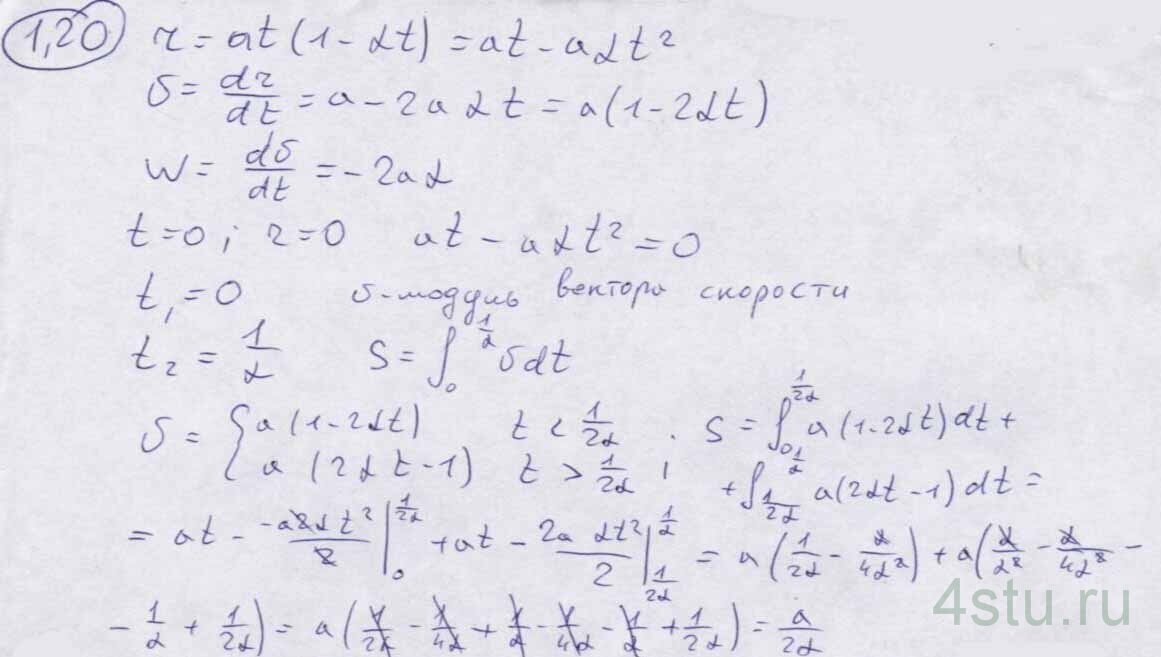 1,20 r = at(1-αt) = at - aαt²
υ = dr/dt = a - 2aαt = a(1-2αt)
w = dυ/dt = -2aα
t=0; r=0 at - aαt² = 0
t₁=0 υ-модуль вектора скорости
t₂ = 1/α S = ∫₀^(1/α) υdt
υ = { a(1-2αt) t < 1/2α ; S = ∫₀^(1/2α) a(1-2αt)dt +
a(2αt-1) t > 1/2α ; + ∫_(1/2α)^(1/α) a(2αt-1)dt =
= at - -a2αt²/2 |₀^(1/2α) + at - 2aαt²/2 |_(1/2α)^(1/α) = a(1/2α - α/4α²) + a(α/α² - α/4α² -
- 1/α + 1/2α) = a(1/2α - 1/4α + 1/α - 1/4α - 1/α + 1/2α) = a/2α
4stu.ru